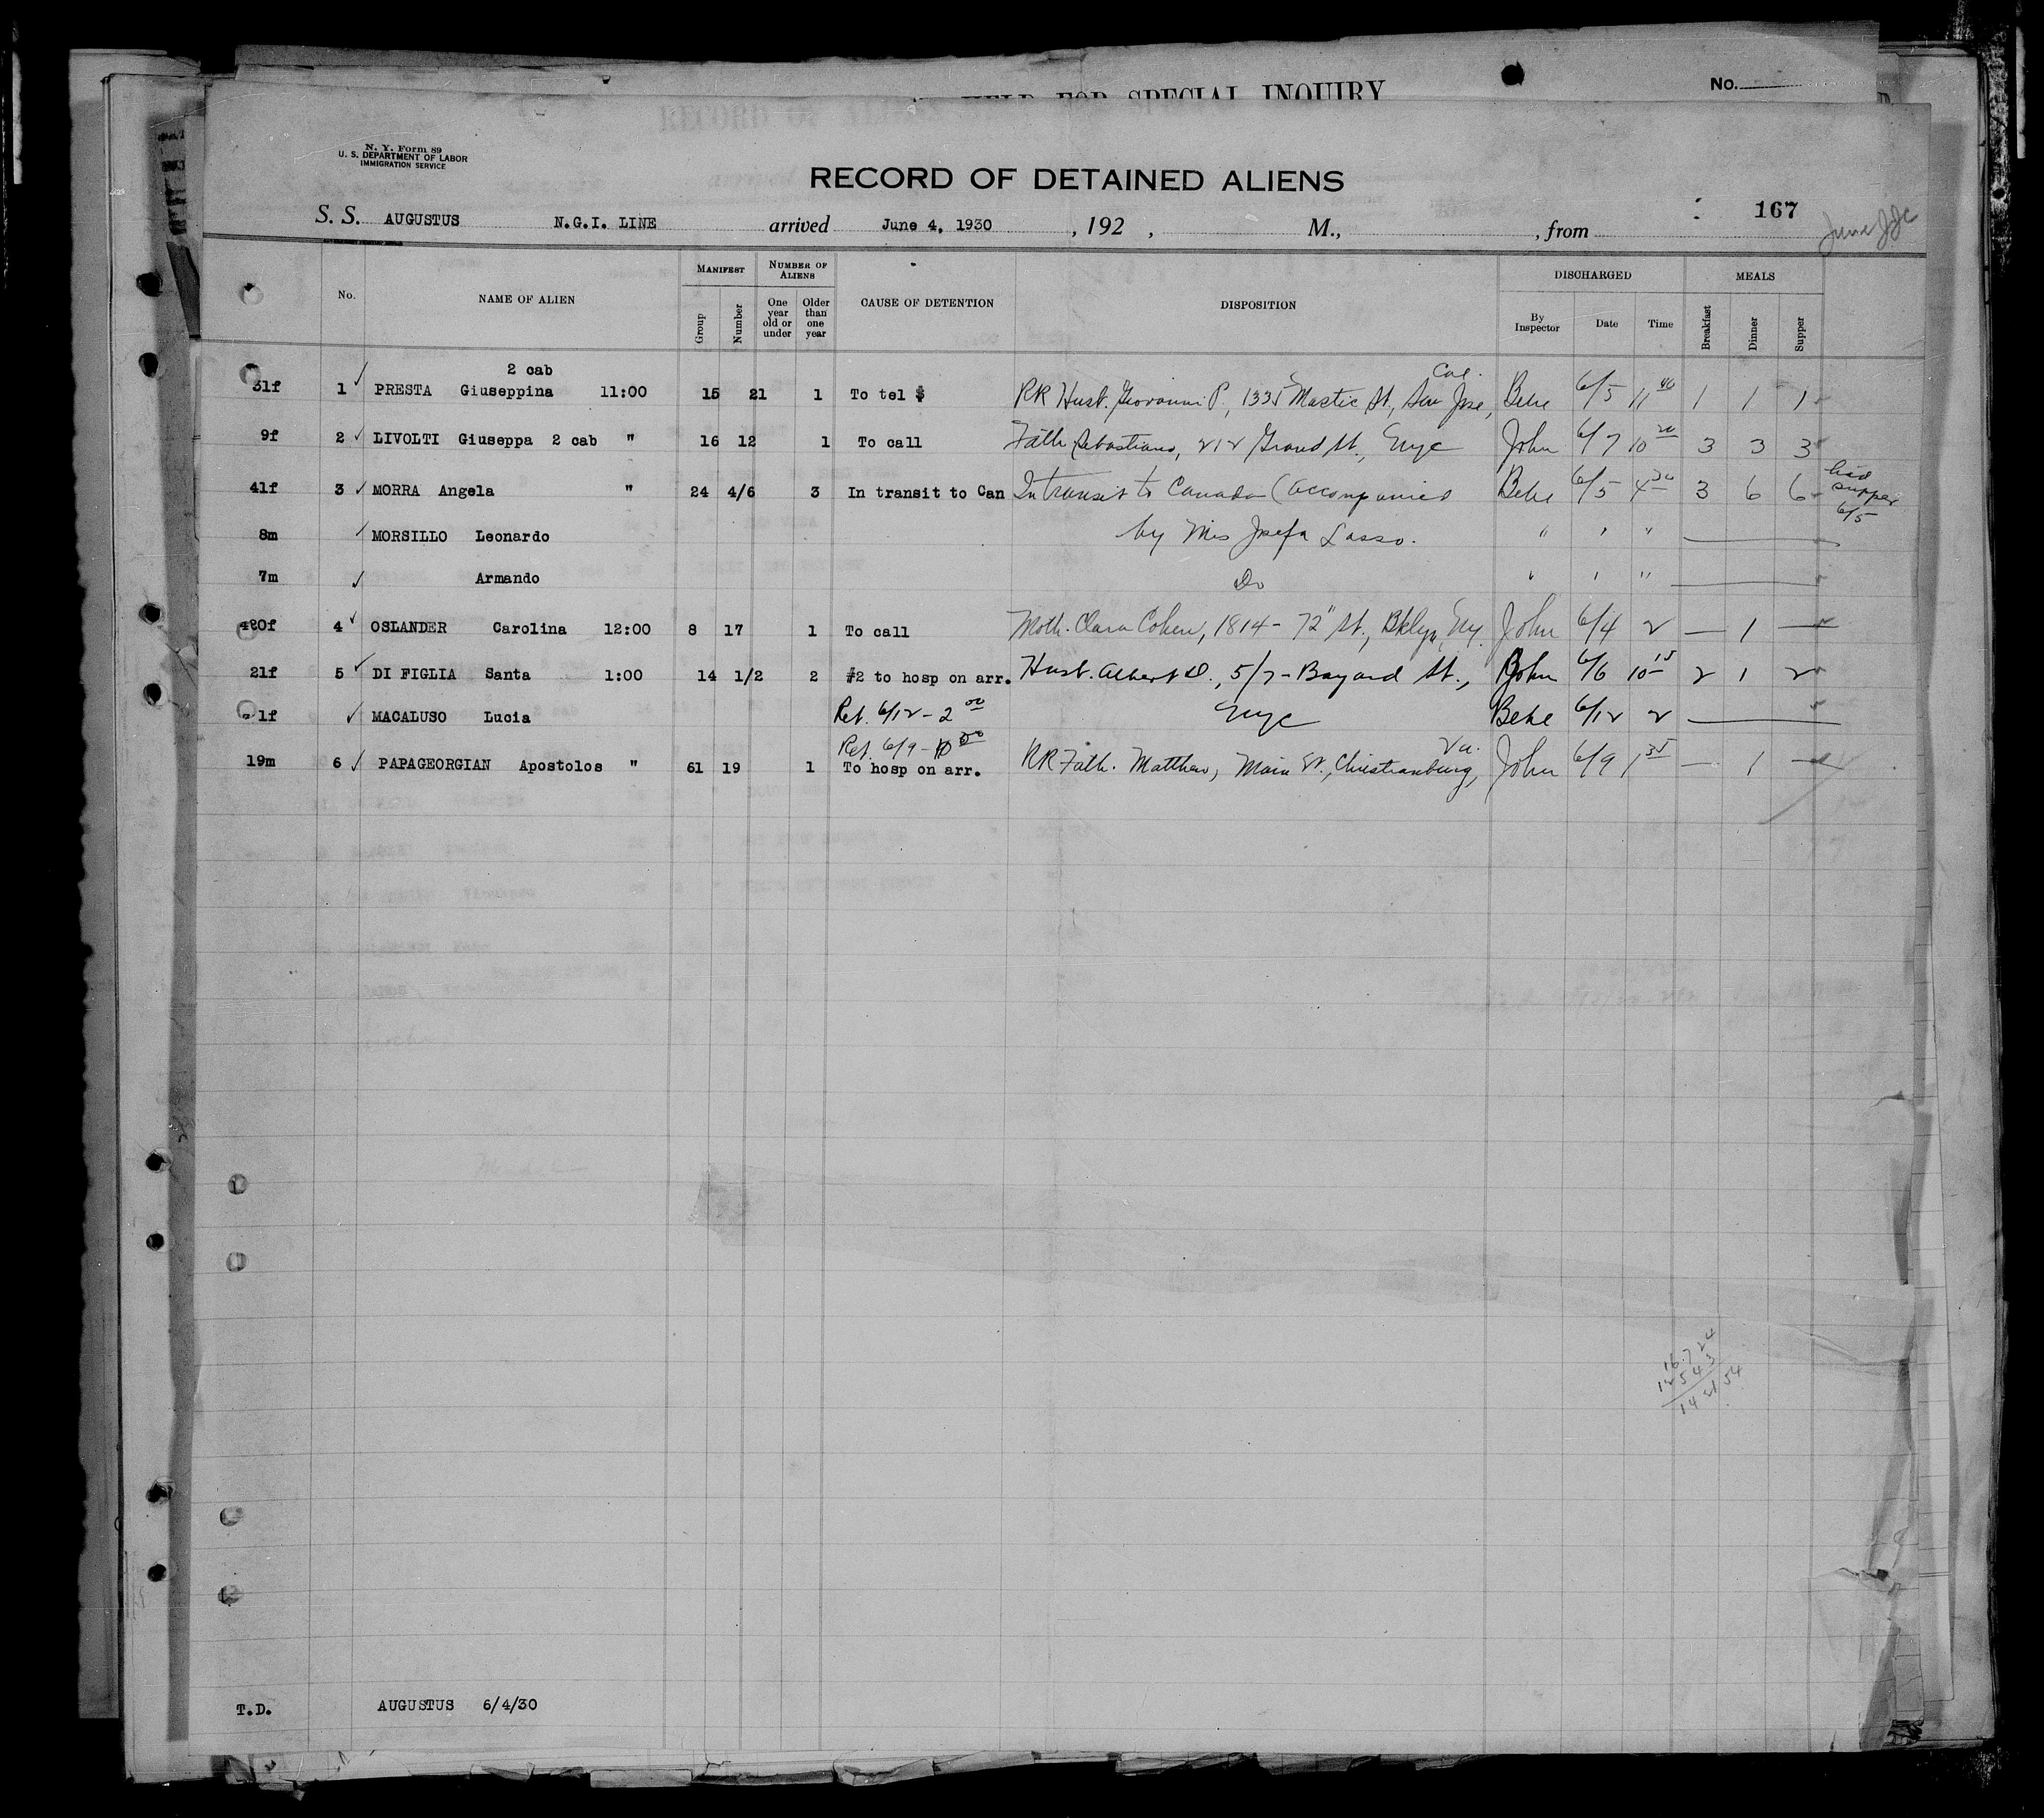 HELD FOR SPECIAL INQUIRY
No.
N. Y. Form 89
U. S. DEPARTMENT OF LABOR
IMMIGRATION SERVICE
RECORD OF DETAINED ALIENS
167
S. S. AUGUSTUS N.G.I. LINE arrived June 4, 1930, 192 , M., , from
No. NAME OF ALIEN MANIFEST Group Number NUMBER OF ALIENS One year old or under Older than one year CAUSE OF DETENTION DISPOSITION DISCHARGED By Inspector Date Time MEALS Breakfast Dinner Supper
2 cab Cal.
31f 1 ✓ PRESTA Giuseppina 11:00 15 21 1 To tel $ RR Husb. Giovanni P., 1335 Mastic St., San Jose, Behe 6/5 11 40 1 1 1
9f 2 ✓ LIVOLTI Giuseppa 2 cab " 16 12 1 To call Fath Sebastiano, 212 Grand St., Nyc John 6/7 10 20 3 3 3
41f 3 ✓ MORRA Angela " 24 4/6 3 In transit to Can In transit to Canada (accompanied Behe 6/5 4 30 3 6 6 had supper 6/5
8m ✓ MORSILLO Leonardo by Mis Josefa Lasso. " " "
7m ✓ Armando Do " " "
f 4 ✓ OSLANDER Carolina 12:00 8 17 1 To call Moth. Clara Cohen, 1814 - 72" St., Bklyn, Ny. John 6/4 2 — 1 —
21f 5 ✓ DI FIGLIA Santa 1:00 14 1/2 2 #2 to hosp on arr. Husb. Albert D., 5/7 - Bayard St., John 6/6 10 15 2 1 2
1f ✓ MACALUSO Lucia Ret. 6/12 - 2 00 Nyc Behe 6/12 2
Ret. 6/9 - 10 00 Va.
19m 6 ✓ PAPAGEORGIAN Apostolos " 61 19 1 To hosp on arr. RR Fath. Matthew, Main St., Christianburg, John 6/9 1 35 — 1 —
T.D. AUGUSTUS 6/4/30